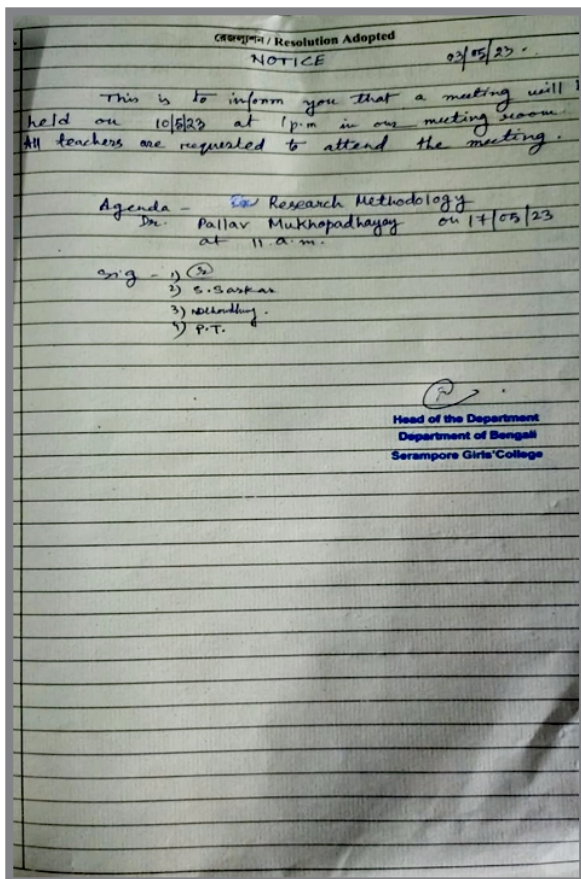 রেজল্যুশন / Resolution Adopted
NOTICE 03/05/23.
This is to inform you that a meeting will
held on 10/5/23 at 1 p.m in our meeting room.
All teachers are requested to attend the meeting.
Agenda - Research Methodology
Dr. Pallav Mukhopadhayay on 17/05/23
at 11.a.m.
Sig - 1)
2) S. Sarkar
3) NDChoudhury.
4) P.T.
Head of the Department
Department of Bengali
Serampore Girls'College